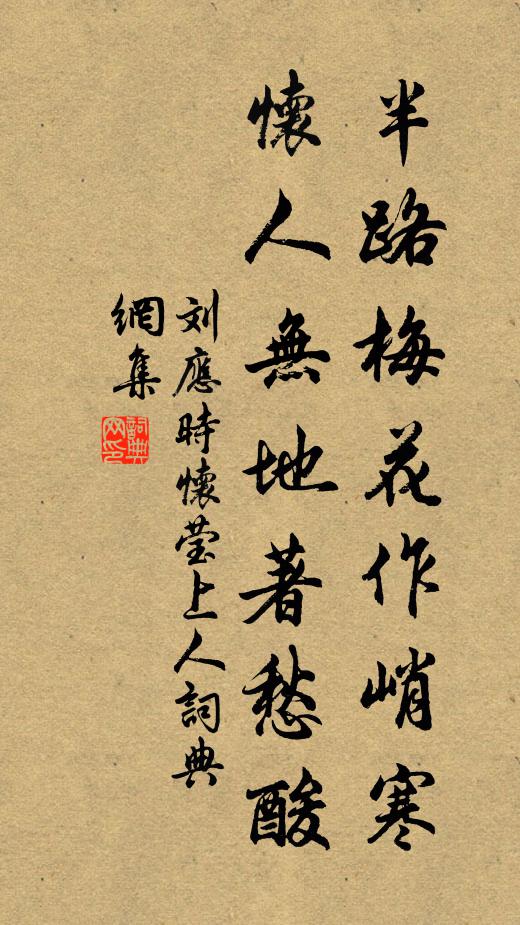 半路梅花作峭寒
懷人無地著愁酸
刘應時懷莹上人詞典
網集
詞典网印